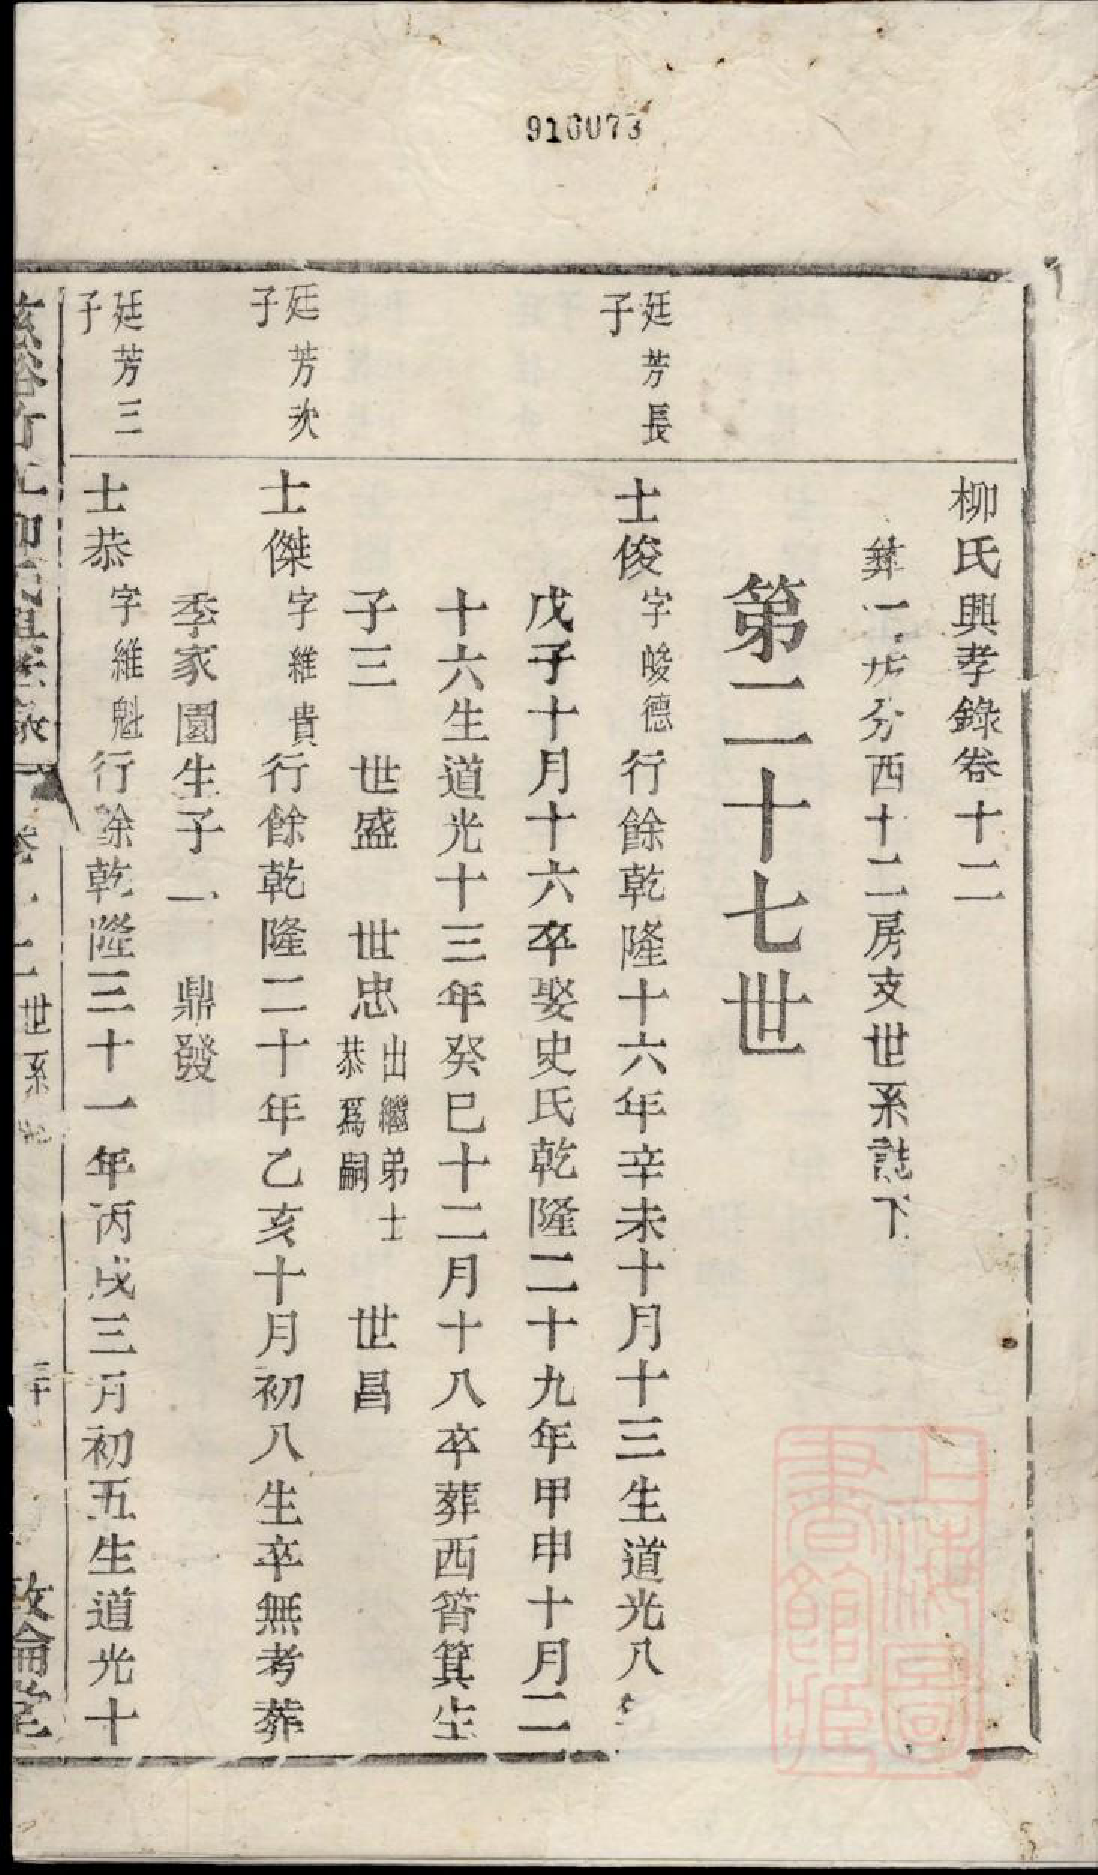 916073
柳氏興孝錄卷十二
彝一房分西十二房支世系誌下
第二十七世
廷芳長子
士俊字峻德行餘乾隆十六年辛未十月十三生道光八年
戊子十月十六卒娶史氏乾隆二十九年甲申十月二
十六生道光十三年癸巳十二月十八卒葬西筲箕生
子三 世盛 世忠出繼弟士恭爲嗣 世昌
廷芳次子
士傑字維貴行餘乾隆二十年乙亥十月初八生卒無考葬
季家園生子一 鼎發
廷芳三子
士恭字維魁行餘乾隆三十一年丙戌三月初五生道光十
世系
敦倫堂
上海圖書館藏